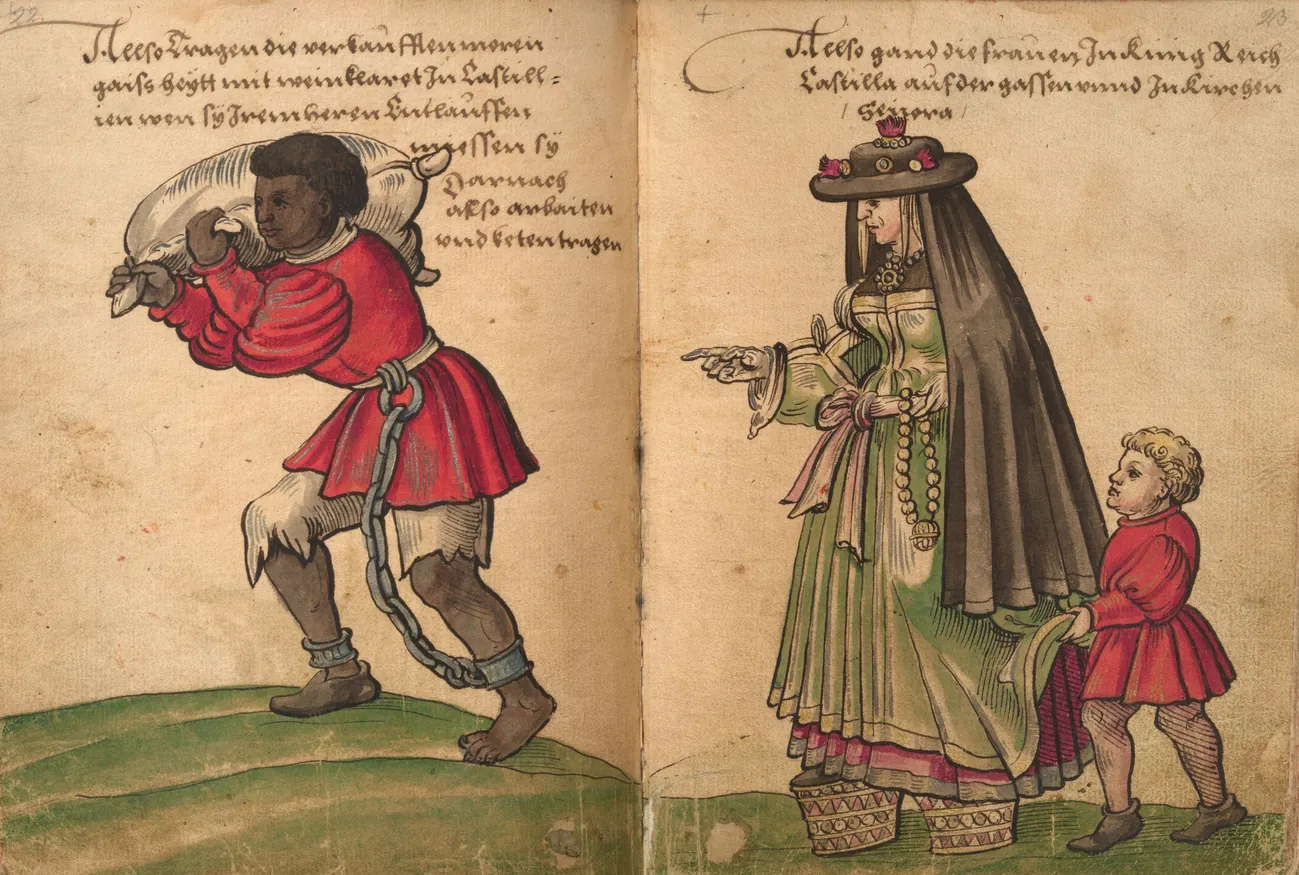 22
Allso Tragen die verkaufften moren
gaiss heytt mit wein klaret In Castill=
ien wen sy Irem heren Entlauffen
miessen sy
Darnach
also arbaiten
und keten tragen
23
Allso gand die frauen In Kunig Reich
Castilla auf der gassen unnd In Kirchen
/ Senora /